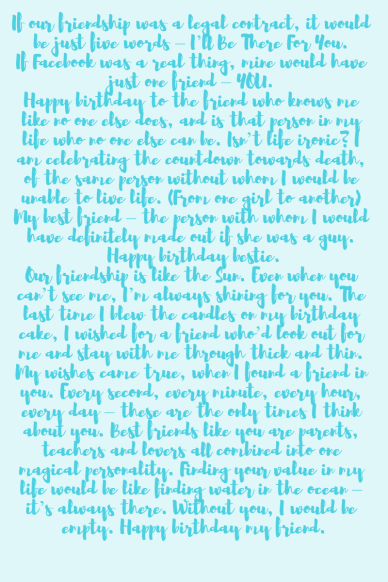 If our friendship was a legal contract, it would
be just five words – I'll Be There For You.
If Facebook was a real thing, mine would have
just one friend – YOU.
Happy birthday to the friend who knows me
like no one else does, and is that person in my
life who no one else can be. Isn't life ironic? I
am celebrating the countdown towards death,
of the same person without whom I would be
unable to live life. (From one girl to another)
My best friend – the person with whom I would
have definitely made out if she was a guy.
Happy birthday bestie.
Our friendship is like the Sun. Even when you
can't see me, I'm always shining for you. The
last time I blew the candles on my birthday
cake, I wished for a friend who'd look out for
me and stay with me through thick and thin.
My wishes came true, when I found a friend in
you. Every second, every minute, every hour,
every day – these are the only times I think
about you. Best friends like you are parents,
teachers and lovers all combined into one
magical personality. Finding your value in my
life would be like finding water in the ocean –
it's always there. Without you, I would be
empty. Happy birthday my friend.